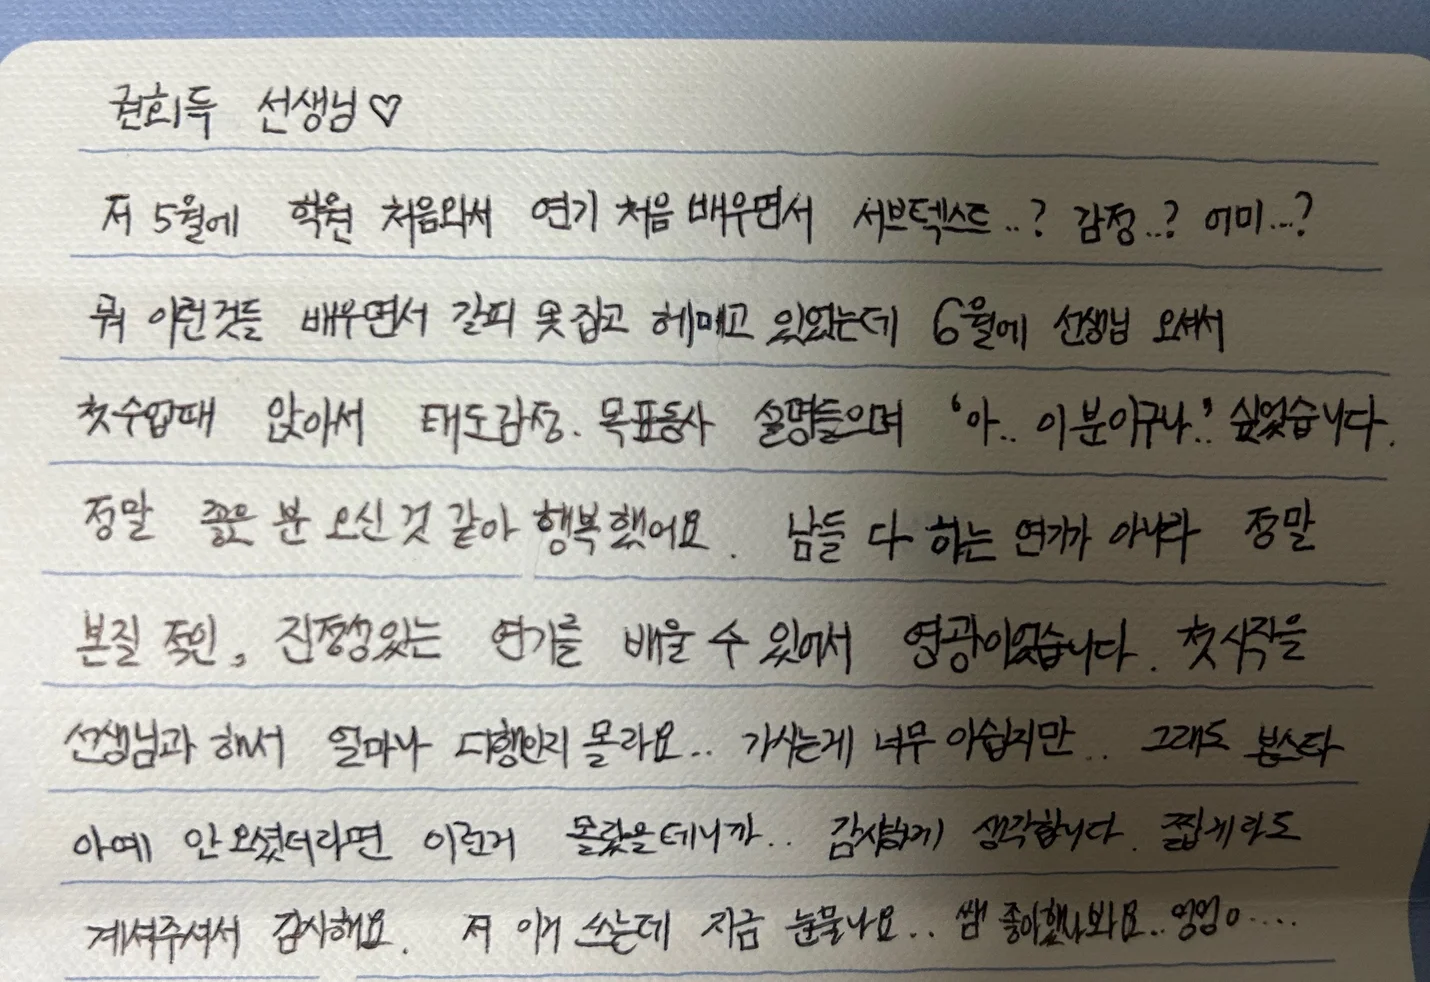 권희득 선생님♡
저 5월에 학원 처음와서 연기 처음 배우면서 서브텍스트..? 감정..? 어미...?
뭐 이런것들 배우면서 갈피 못 잡고 헤매고 있었는데 6월에 선생님 오셔서
첫수업때 앉아서 태도감정. 목표동사 설명들으며 '아.. 이분이구나..' 싶었습니다.
정말 좋은 분 오신 것 같아 행복했어요. 남들 다 하는 연기가 아니라 정말
본질 적인, 진정성있는 연기를 배울 수 있어서 영광이었습니다. 첫 시작을
선생님과 해서 얼마나 다행인지 몰라요.. 가시는게 너무 아쉽지만.. 그래도 본스타
아예 안오셨더라면 이런거 몰랐을테니까.. 감사하게 생각합니다. 짧게라도
계셔주셔서 감사해요. 저 이거 쓰는데 지금 눈물나요.. 쌤 좋아했나봐요.. 엉엉ㅇ....